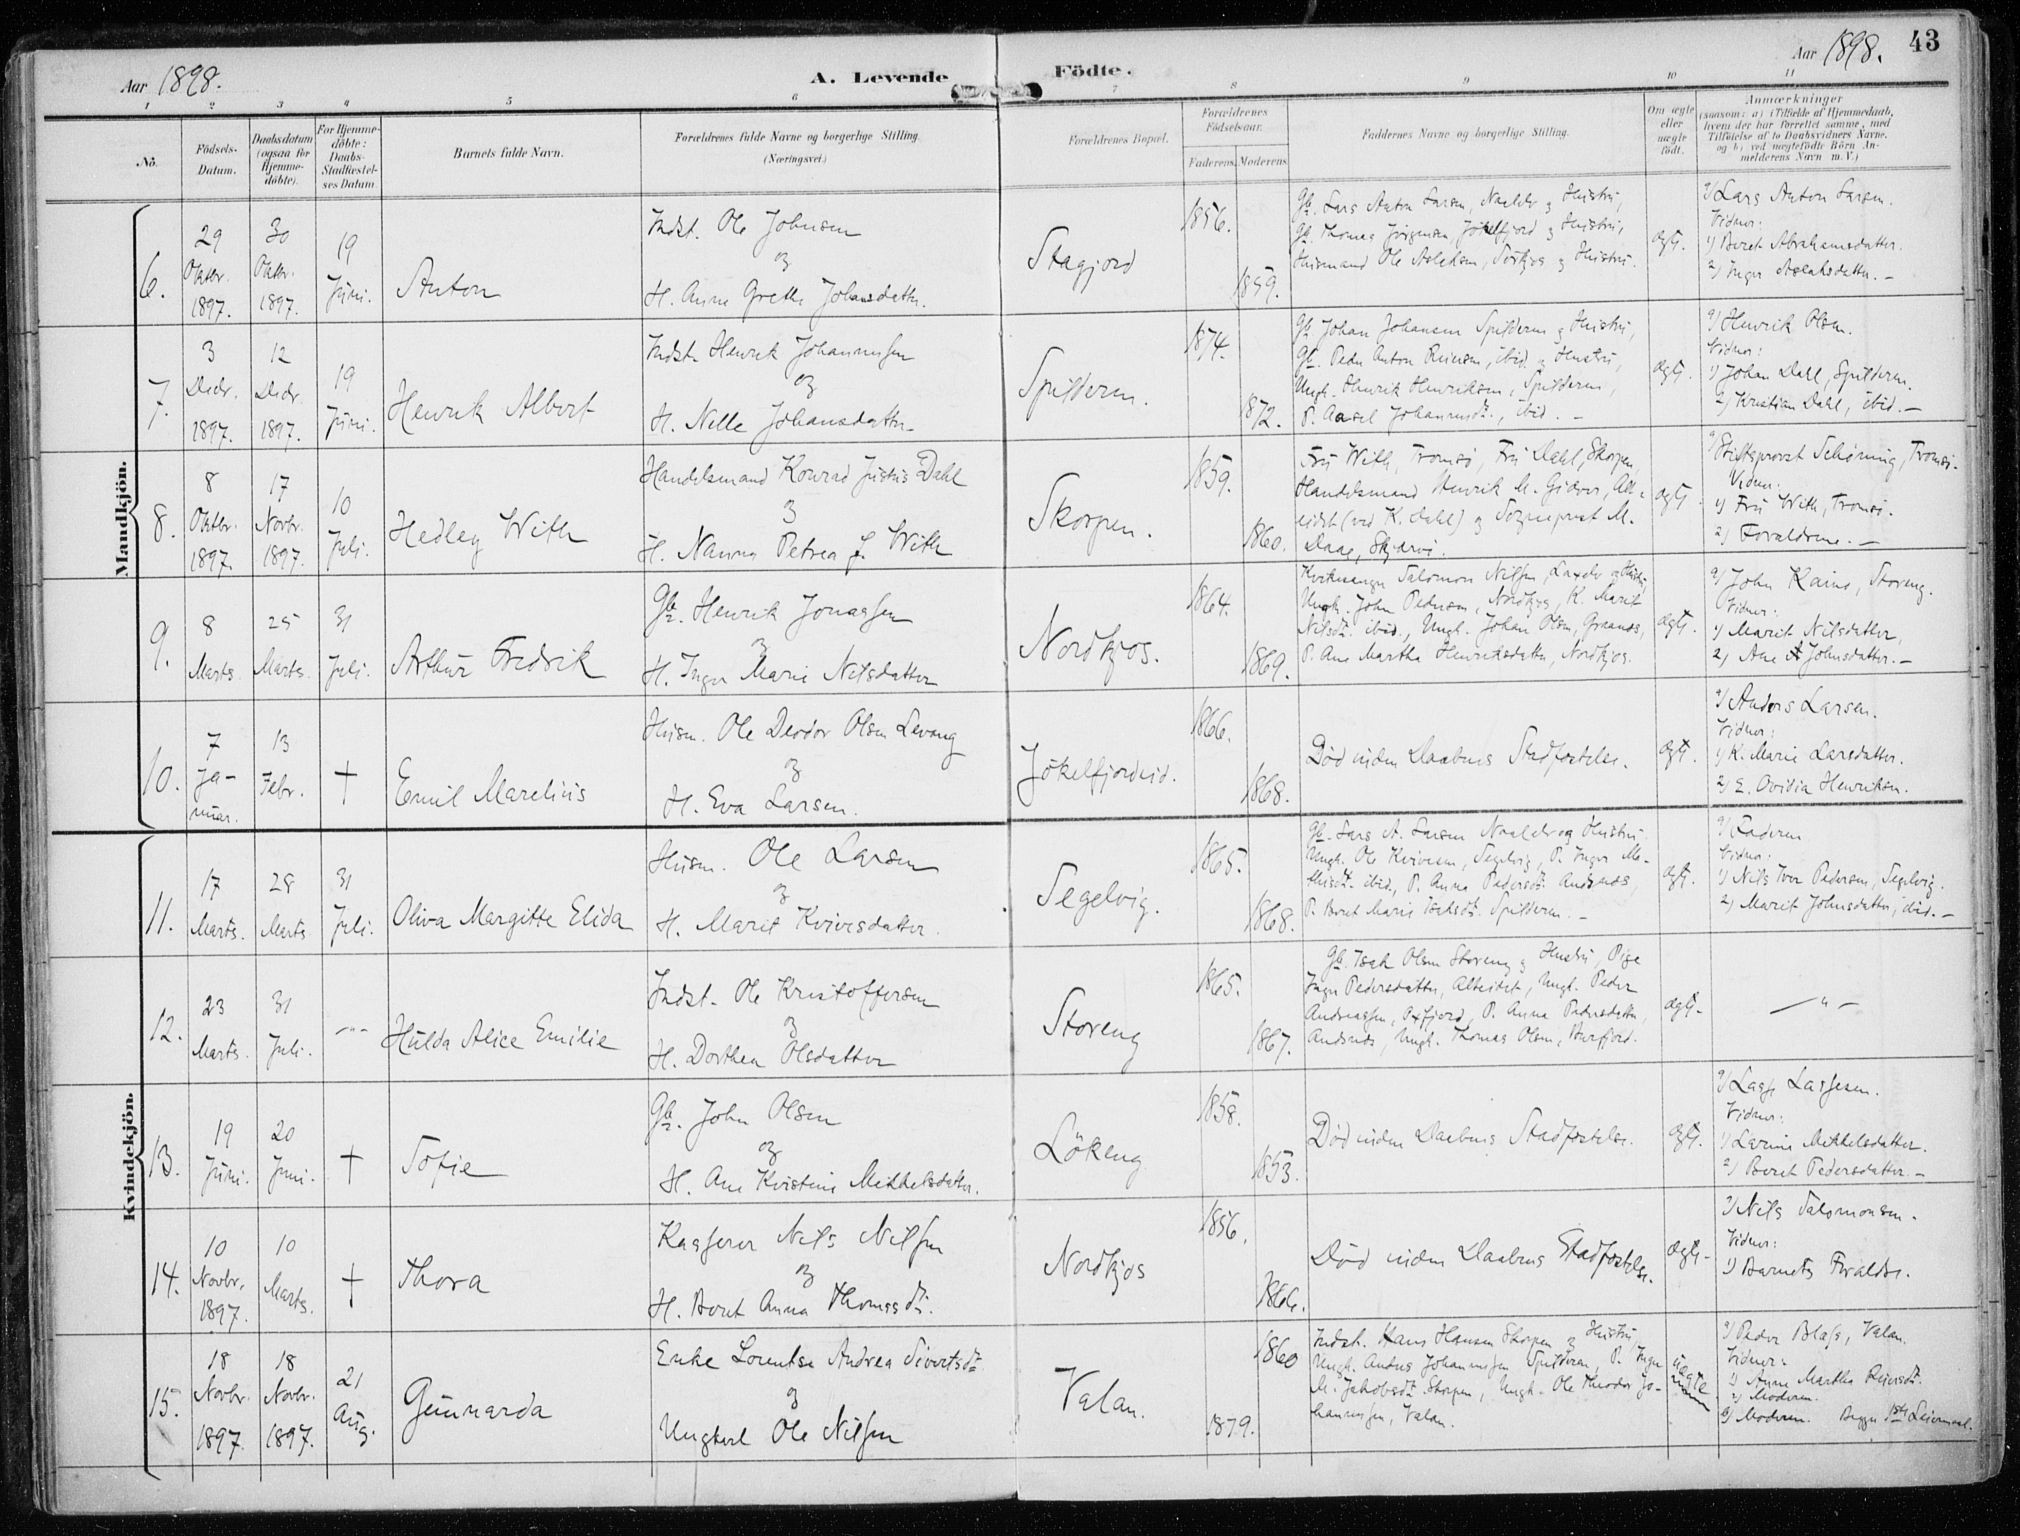 Aar 1898.
A. Levende Födte.
Aar 1898. 43
1 2 3 4 5 6 7 8 9 10 11
No.
Födsels-Datum.
Daabsdatum (ogsaa for Hjemme-döbte).
For Hjemme-döbte: Daabs-Stadfæstel-ses Datum.
Barnets fulde Navn.
Forældrenes fulde Navne og borgerlige Stilling.
(Næringsvei.)
Forældrenes Bopæl.
Forældrenes Födselsaar.
Faderens. Moderens.
Faddernes Navne og borgerlige Stilling.
Om ægte eller uægte födt.
Anmærkninger
(saasom: a) i Tilfælde af Hjemmedaab,
hvem der har forrettet samme, med
Tilföielse af to Daabsvidners Navne.
og b) ved uægtefödte Börn An-
melderens Navn m. V.)
Mandkjön.
6.
29 Oktbr. 1897.
30 Oktbr. 1897.
19 Juni.
Anton
Indst. Ole Johnsen
og
H. Anne Grethe Johansdatter.
Stagjord
1856.
1859.
Gb. Lars Anton Larsen, Naalelv og Hustru,
Gb. Thomas Jörgensen, Jökelfjord og Hustru,
Husmand Ole Aslaksen, Sörkjos og Hustru.
ægt.
a) Lars Anton Larsen.
Vidner:
1) Beret Abrahamsdatter.
2) Inger Aslaksdatter. –
7.
3 Decbr. 1897.
12 Decbr. 1897.
19 Juni.
Henrik Albert
Indst. Henrik Johannessen
og
H. Nelle Johansdatter
Spilderen.
1874.
1872.
Gb. Johan Johansen Spilderen og Hustru,
Gb. Peder Anton Reiersen, ibid. og Hustru,
Ungk. Henrik Henriksen, Spilderen,
P. Aasel Johannesdt., ibid. –
ægt.
a) Henrik Olsen.
Vidner:
1) Johan Dahl, Spilderen.
2) Kristian Dahl, ibid. –
8.
8 Oktbr. 1897.
17 Novbr. 1897.
10 Juli.
Hedley With
Handelsmand Konrad Justus Dahl
og
H. Nanna Petrea f. With
Skorpen.
1859.
1860.
Fru With, Tromsö, Fru Dahl, Skorpen,
Handelsmand Henrik M. Giæver, Alt-
eidet (ved K. Dahl) og Sogneprest M.
Daae, Skjervö.
ægt.
a) Stiftsprovst Schöning, Tromsö.
Vidner:
1) Fru With, Tromsö.
2) Forældrene. –
9.
8 Marts.
25 Marts.
31 Juli.
Arthur Fredrik
Gb. Henrik Jonassen
og
H. Inger Marie Nilsdatter
Nordkjos.
1864.
1869.
Kvænangen Salomon Nilsen, Laxelv og Hustru
Ungk. John Pedersen, Nordkjos, K. Marit
Nilsdt. ibid., Ungk. Johan Olsen, Graanes,
P. Ane Martha Henriksdatter, Nordkjos.
ægt.
a) John Kaino, Storeng.
Vidner:
1) Marit Nilsdatter,
2) Ane Johnsdatter. –
10.
7 Ja-nuar.
13 Febr.
†
Emil Marelius
Husm. Ole Deodor Olsen Levang
og
H. Eva Larsen.
Jökelfjordeid.
1866.
1868.
Död inden Daabens Stadfæstelse.
ægt.
a) Anders Larsen.
Vidner:
1) K. Marie Larsdatter.
2) E. Ovidia Henriksen.
Kvindekjön.
11.
17 Marts.
28 Marts
31 Juli.
Oliva Margitte Elida
Husm. Ole Larsen
og
H. Marit Kvivesdatter.
Segelvig.
1865.
1868.
Gb. Lars A. Larsen Naalelv og Hustru.
Ungk. Ole Kvivesen, Segelvig, P. Inger Ma-
thisdt. ibid., P. Anna Pedersdt. Andsnes,
P. Beret Marie Isaksdt. Spilderen. –
ægt.
a) Faderen
Vidner:
1) Nils Iver Pedersen, Segelvig.
2) Marit Johnsdatter, ibid. –
12.
23 Marts.
31 Juli.
– " –
Hulda Alice Emilie
Indst. Ole Kristoffersen
og
H. Dorthea Olsdatter
Storeng
1865.
1867.
Gb. Isak Olsen Storeng og Hustru, Pige
Inger Pedersdatter, Alteidet, Ungk. Peder
Andreassen, Oxfjord, P. Anna Pedersdatter,
Andsnes, Ungk. Thomas Olsen, Burfjord.
ægt.
– " –
13.
19 Juni.
20 Juni.
†
Sofie
Gb. John Olsen
og
H. Ane Kristine Mikkelsdatter.
Lökeng
1858.
1853.
Död inden Daabens Stadfæstelse.
ægt.
a) Lasse Lassesen.
Vidner:
1) Larine Mikkelsdatter.
2) Beret Pedersdatter. –
14.
10 Novbr. 1897.
10 Marts.
†
Thora
Kasserer Nils Nilsen
og
H. Beret Anna Thomasdt.
Nordkjos
1856.
1866.
Död inden Daabens Stadfæstelse.
ægt.
a) Nils Salomonsen.
Vidner:
1) Barnets Forældre.
15.
18 Novbr. 1897.
18 Novbr. 1897.
21 Aug.
Gunnarda
Enke Lorentse Andrea Sivertsdt.
og
Ungkarl Ole Nilsen
Valan.
1860
1879.
Indst. Hans Hansen Skorpen og Hustru,
Ungk. Anders Johannessen Spilderen, P. Inger
M. Jakobsdt. Skorpen, Ungk. Ole Theodor Jo-
hannessen, Valan.
uægte
a) Peder Blass, Valan.
Vidner:
1) Anne Martha Reiersdt.
2) Moderen.
b) Moderen. Begges 1ste Leiermaal.